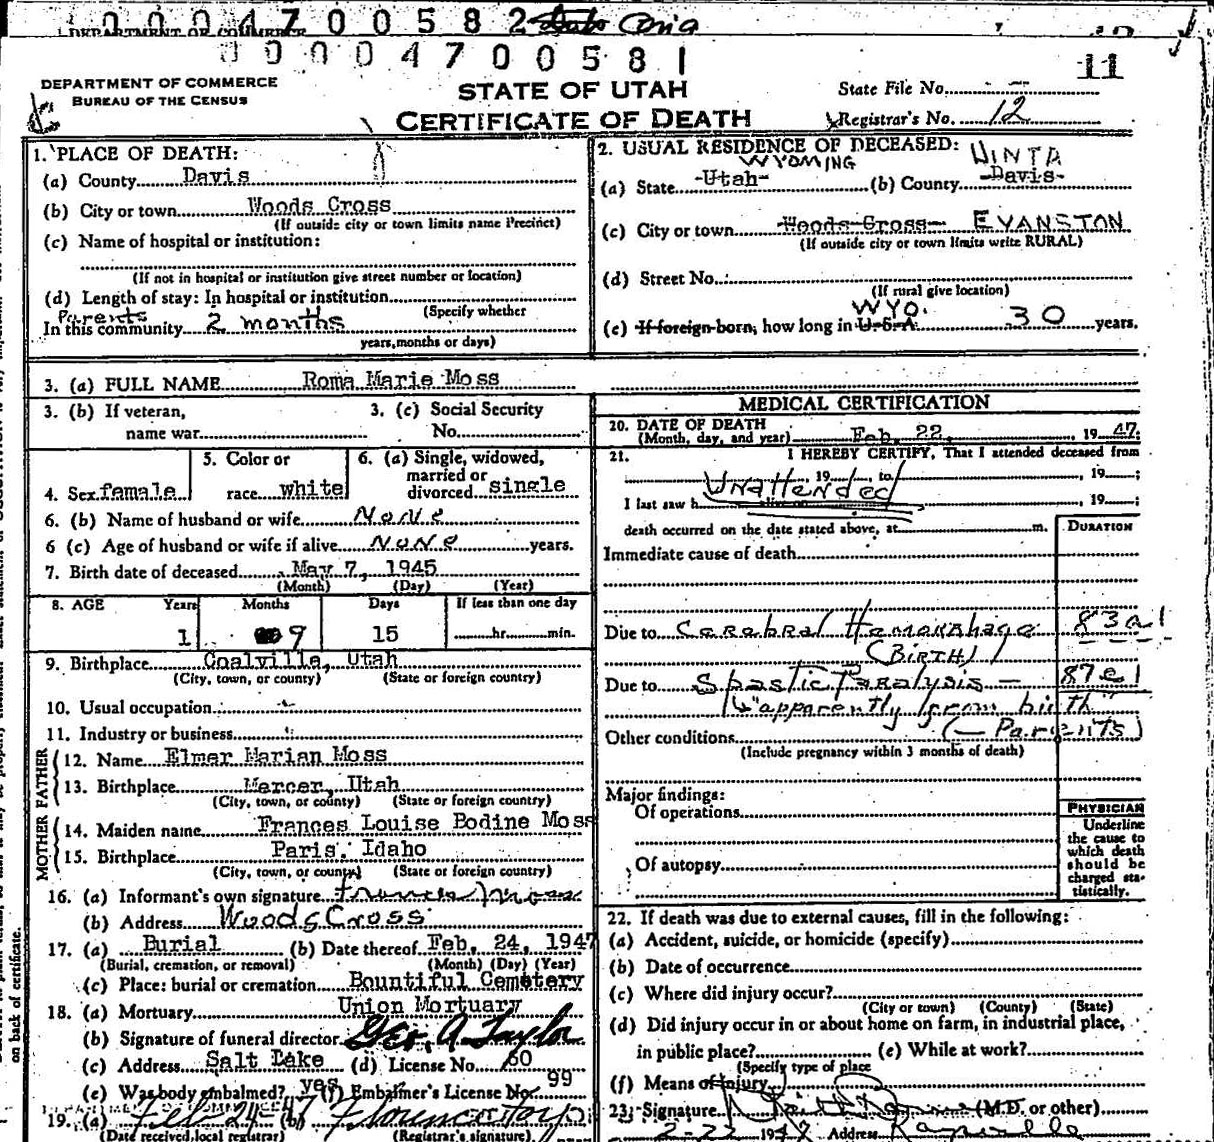 0 0 0 4 7 0 0 5 8 2
0 0 0 4 7 0 0 5 8 1
11
DEPARTMENT OF COMMERCE
BUREAU OF THE CENSUS
STATE OF UTAH
CERTIFICATE OF DEATH
State File No.
Registrar's No. 12
1. PLACE OF DEATH:
(a) County Davis
(b) City or town Woods Cross
(If outside city or town limits name Precinct)
(c) Name of hospital or institution:
(If not in hospital or institution give street number or location)
(d) Length of stay: In hospital or institution
(Specify whether
Parents
In this community 2 months
years, months or days)
2. USUAL RESIDENCE OF DECEASED:
WYOMING UINTA
(a) State -Utah- (b) County -Davis-
(c) City or town Woods Cross- EVANSTON
(If outside city or town limits write RURAL)
(d) Street No.
(If rural give location)
WYO.
(e) If foreign born, how long in U.S.A. 30 years.
3. (a) FULL NAME Roma Marie Moss
3. (b) If veteran,
name war
3. (c) Social Security
No.
4. Sex female
5. Color or
race white
6. (a) Single, widowed,
married or
divorced single
6. (b) Name of husband or wife None
6 (c) Age of husband or wife if alive None years.
7. Birth date of deceased May 7, 1945
(Month) (Day) (Year)
8. AGE Years Months Days If less than one day
1 9 15 hr. min.
9. Birthplace Coalville, Utah
(City, town, or county) (State or foreign country)
10. Usual occupation
11. Industry or business
MOTHER FATHER
12. Name Elmer Marian Moss
13. Birthplace Mercer, Utah
(City, town, or county) (State or foreign country)
14. Maiden name Frances Louise Bodine Moss
15. Birthplace Paris, Idaho
(City, town, or county) (State or foreign country)
16. (a) Informant's own signature Frances Moss
(b) Address Woods Cross
17. (a) Burial (b) Date thereof Feb. 24, 1947
(Burial, cremation, or removal) (Month) (Day) (Year)
(c) Place: burial or cremation Bountiful Cemetery
18. (a) Mortuary Union Mortuary
(b) Signature of funeral director Geo. A. Taylor
(c) Address Salt Lake (d) License No. 60
(e) Was body embalmed? yes (f) Embalmer's License No. 99
19. (a) Feb 24-47 (b)
(Date received local registrar) (Registrar's signature)
on back of certificate.
MEDICAL CERTIFICATION
20. DATE OF DEATH
(Month, day, and year) Feb. 22, 19 47
21. I HEREBY CERTIFY, That I attended deceased from
Unattended , 19 , to , 19 ;
I last saw h , 19 ;
death occurred on the date stated above, at m.
DURATION
Immediate cause of death
Due to Cerebral Hemorrhage 83a1
(BIRTH)
Due to Spastic Paralysis — 87e1
"apparently from birth"
(— Parents)
Other conditions
(Include pregnancy within 3 months of death)
Major findings:
Of operations
Of autopsy
PHYSICIAN
Underline
the cause to
which death
should be
charged sta-
tistically.
22. If death was due to external causes, fill in the following:
(a) Accident, suicide, or homicide (specify)
(b) Date of occurrence
(c) Where did injury occur?
(City or town) (County) (State)
(d) Did injury occur in or about home on farm, in industrial place,
in public place? (e) While at work?
(Specify type of place
(f) Means of injury
23. Signature (M.D. or other)
2-22 194 Address Kaysville